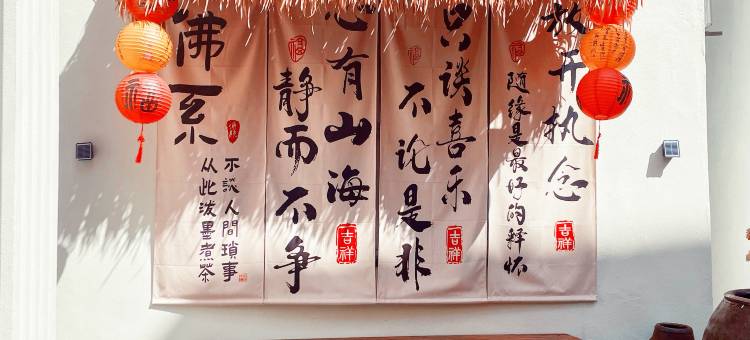 放开执念
随缘是最好的释怀
吉祥
只谈喜乐
不论是非
吉祥
心有山海
静而不争
吉祥
佛系
不談人間瑣事
从此泼墨煮茶